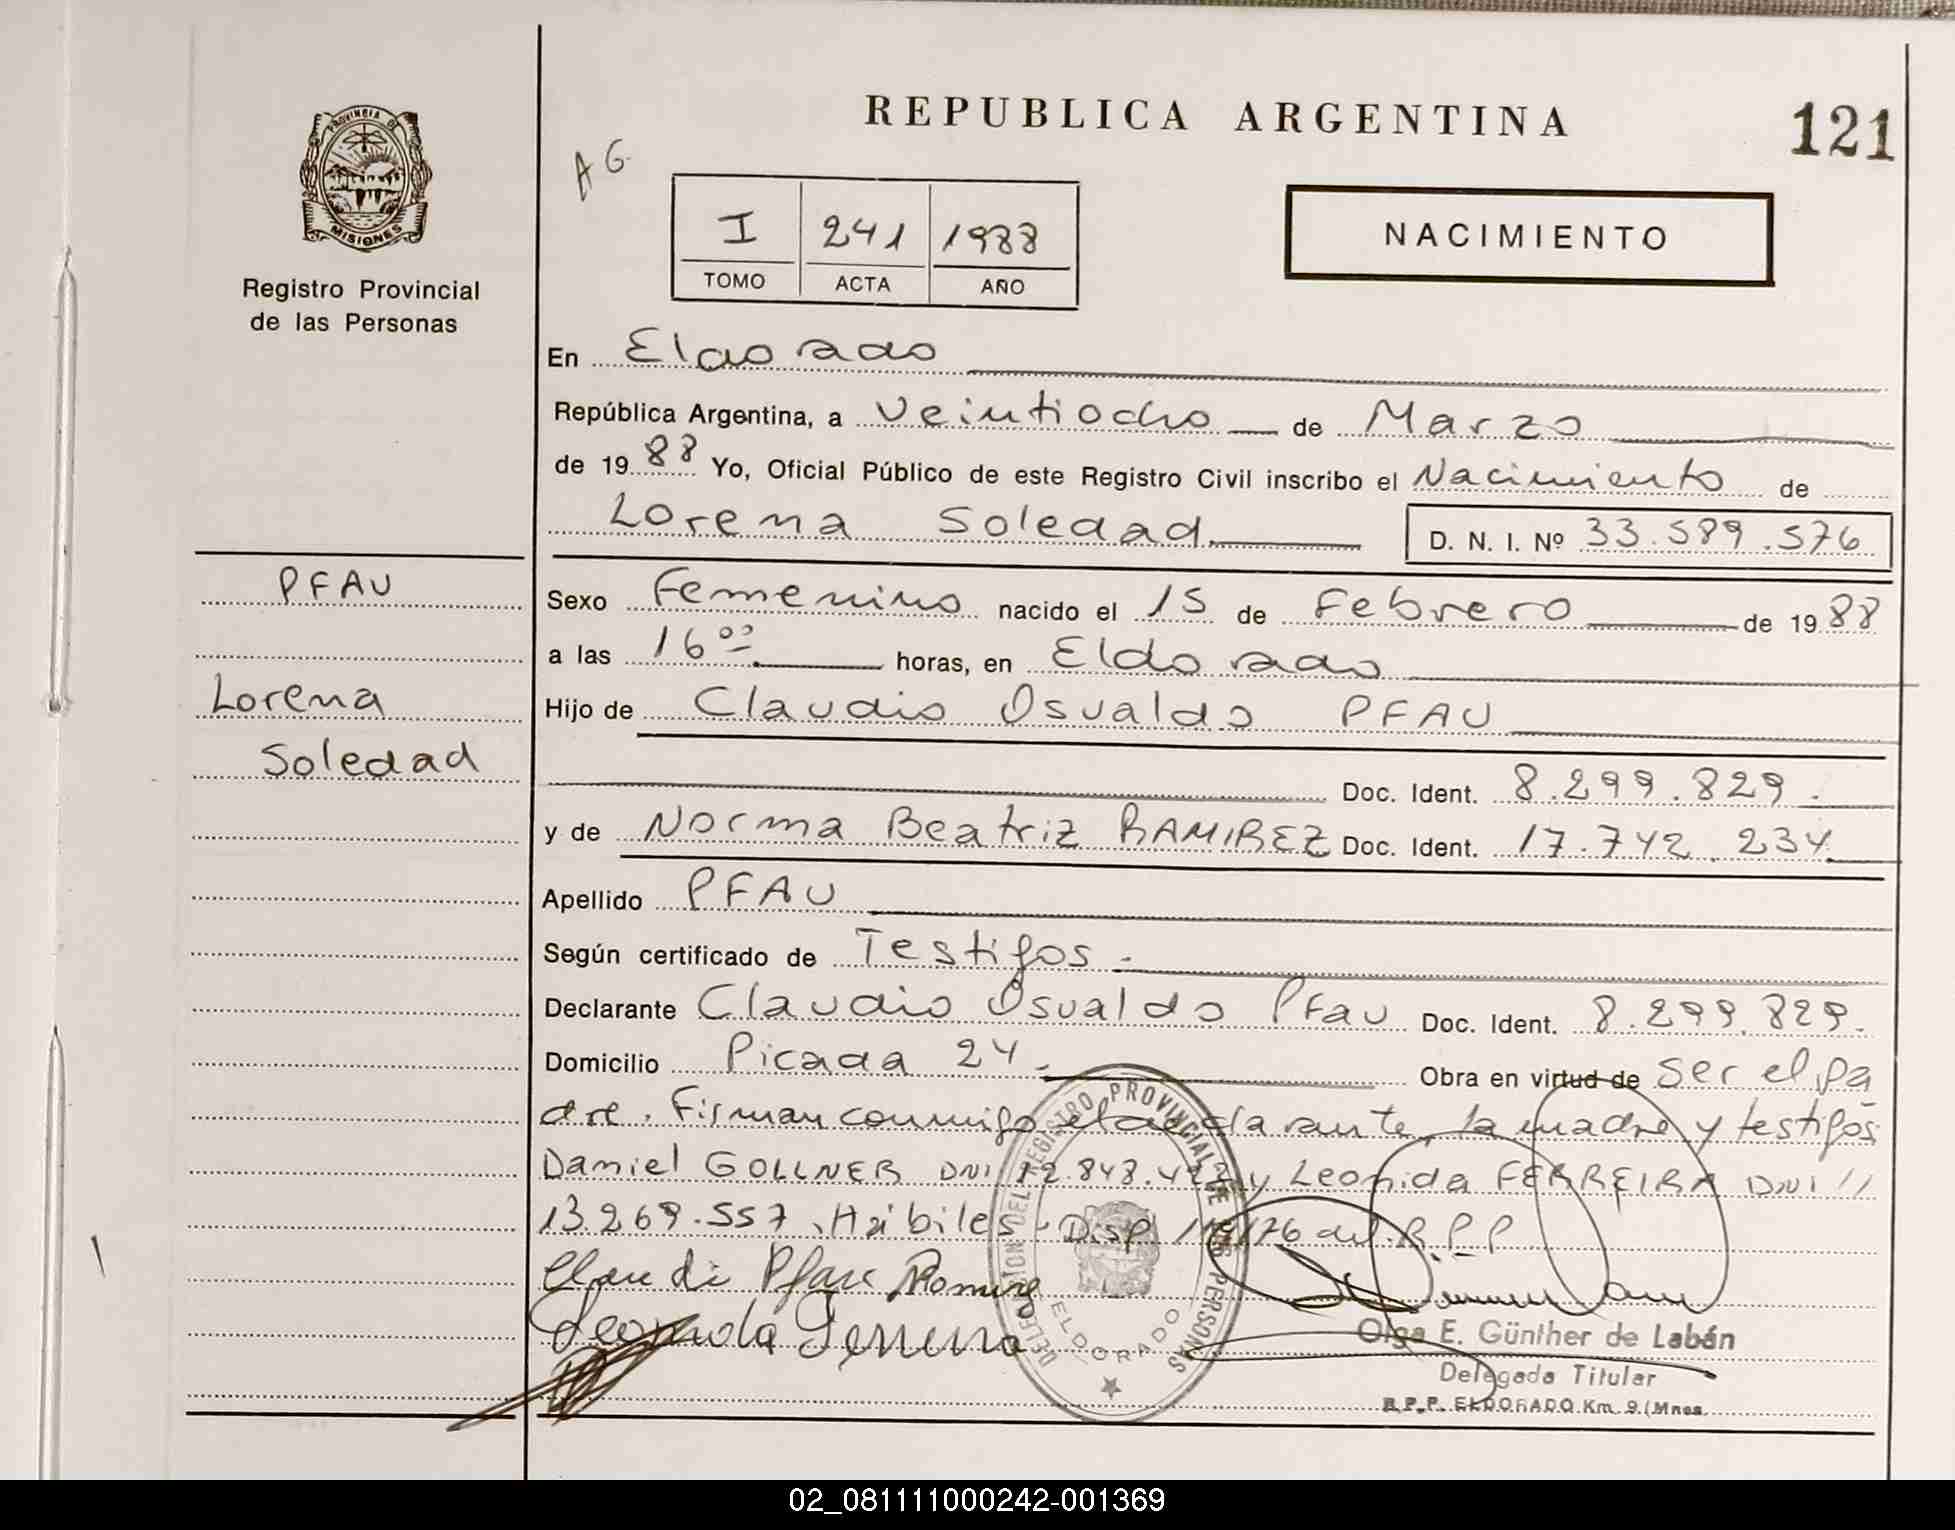 PROVINCIA DE
MISIONES
Registro Provincial
de las Personas
REPUBLICA ARGENTINA
121
A G.
I 241 1988
TOMO ACTA AÑO
NACIMIENTO
En Eldorado
República Argentina, a Veintiocho de Marzo
de 19 88 Yo, Oficial Público de este Registro Civil inscribo el Nacimiento de
Lorena Soledad D. N. I. Nº 33.589.576
PFAU
Lorena
Soledad
Sexo Femenino nacido el 15 de Febrero de 19 88
a las 16 00 horas, en Eldorado
Hijo de Claudio Osvaldo PFAU
Doc. Ident. 8.299.829.
y de Norma Beatriz RAMIREZ Doc. Ident. 17.742.234
Apellido PFAU
Según certificado de Testigos.
Declarante Claudio Osvaldo Pfau Doc. Ident. 8.299.829.
Domicilio Picada 24. Obra en virtud de ser el pa
dre. Firman conmigo el declarante, la madre y testigos
Daniel GOLLNER DNI 12.848. y Leonida FERREIRA DNI //
13.269.557, Hábiles - Disp 119/76 del R.P.P
Leonida Ferreira
DELEGACION DEL REGISTRO PROVINCIAL DE LAS PERSONAS
ELDORADO
Olga E. Günther de Labán
Delegada Titular
R.P.P. ELDORADO Km. 9 (Mnes.
02_081111000242-001369